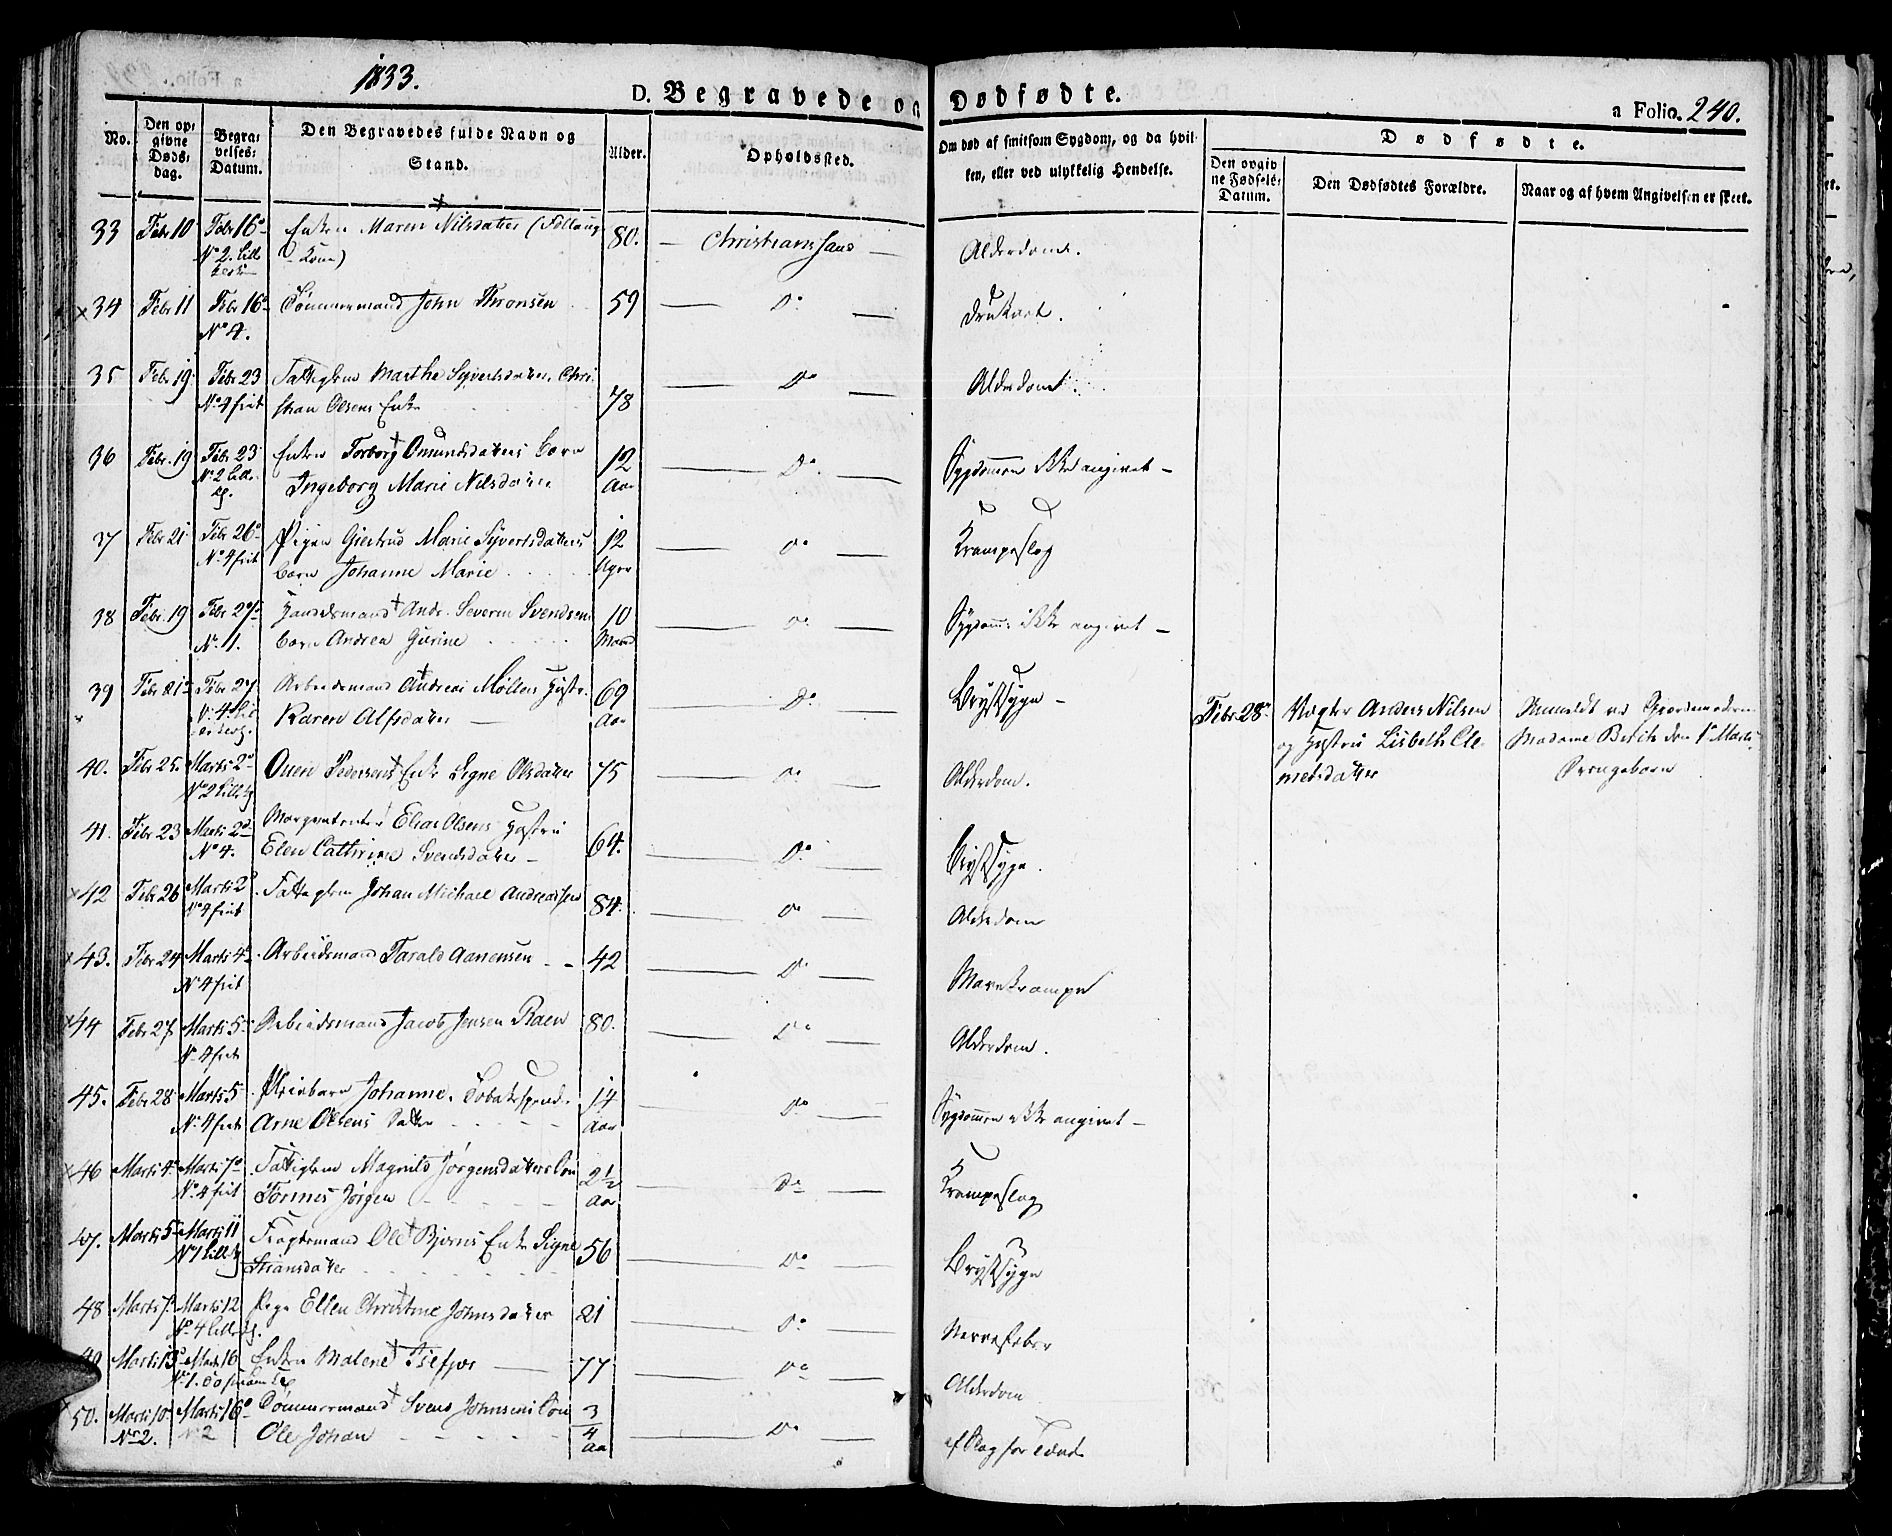 1833.
D. Begravede og Dødfødte.
a Folio. 240.
No.
Den opgivne Dødsdag.
Begravelses-Datum.
Den Begravedes fulde Navn og Stand.
Alder.
Opholdssted.
Om død af smitsom Sygdom, og da hvilken, eller ved ulykkelig Hendelse.
Dødfødte.
Den opgivne Fødsels-Datum.
Den Dødfødtes Forældre.
Naar og af hvem Angivelsen er skeet.
33 Febr 10 Febr 16 Enken Maren Nilsdatter 80. Christianssand Alderdom.
No 2. Lill
34 Febr 11 Febr 16 Tømmermand John Thronsen 59 Do
No 4.
35 Febr 19 Febr 23 Fattiglem Marthe Syvertsdatter, Chri
No 4 frit stian Olsens Enke 78 Do Alderdom.
36 Febr. 19 Febr. 23 Enken Torborg Omundsdatters Barn 12 Do Sygdommen ikke angivet
No 2 Lille Ingeborg Marie Nilsdatter Aar
37 Febr 21 Febr 26 Pigen Giertrud Marie Syvertsdatters 12 Do Krampeslag
No 4 frit Barn Johanne Marie Uger
38 Febr. 19 Febr 27 Handelsmand Andr. Severin Svendsens 10 Do Sygdomm ikke angivet
No 1. Barn Andrea Gurine Maan
39 Febr 21 Febr 27 Arbeidsmand Andreas Møllers Hustr. 69 Do Brystsyge
No 4. Karen Alfsdatter Aar
Febr. 28 Vægter Anders Nilsen
og Hustru Lisbeth Cle
metsdatter
Anmeldt af Gjordemoderen
Madame Berith den 1 Marts
40. Febr 25. Marts 2 Ouen Pedersens Enke Signe Olsdatter 75 Do Alderdom.
No 2 Lille
41. Febr 23 Marts 2 Elias Olsens Hustru 64. Do Brystsyge.
No 4. Elen Cathrine Svendsdatter
42 Febr 26 Marts 2 Fattiglem Johan Michael Andreassen 84. Do Alderdom
No 4 frit
43. Febr 24 Marts 4 Arbeidsmand Tarald Aanensen 42 Do Mavekrampe
No 4 frit
44 Febr 27 Marts 5 Arbeidsmand Jacob Jensen Raen 80. Do Alderdom.
No 4 frit
45. Febr 28 Marts 5 Pleiebarn Johanne, 14 Do Sygdommen ikke angivet
No 4 frit Arne Olsens Datter Aar
46 Marts 4 Marts 7 Fattiglem Magnild Jørgensdatters Søn 2½ Do Krampeslag
No 4 frit Tormes Jørgen Aar
47. Marts 5 Marts 11 Ole Bjørns Enke Signe 56 Do Brystsyge
No 1 Lille Stiansdatter
48 Marts 7 Marts 12 Pige Ellen Christine Johnsdatter 21 Do Nervefeber
No 4 Lille
49 Marts 13 Marts 16 Enken Malene 77 Do Alderdom
No 1.
50. Marts 10 Marts 16 Tømmermand Svend Johnsens Søn 3/4 Do af Slag for Tænder
No 2. No 2 Ole Johan Aar